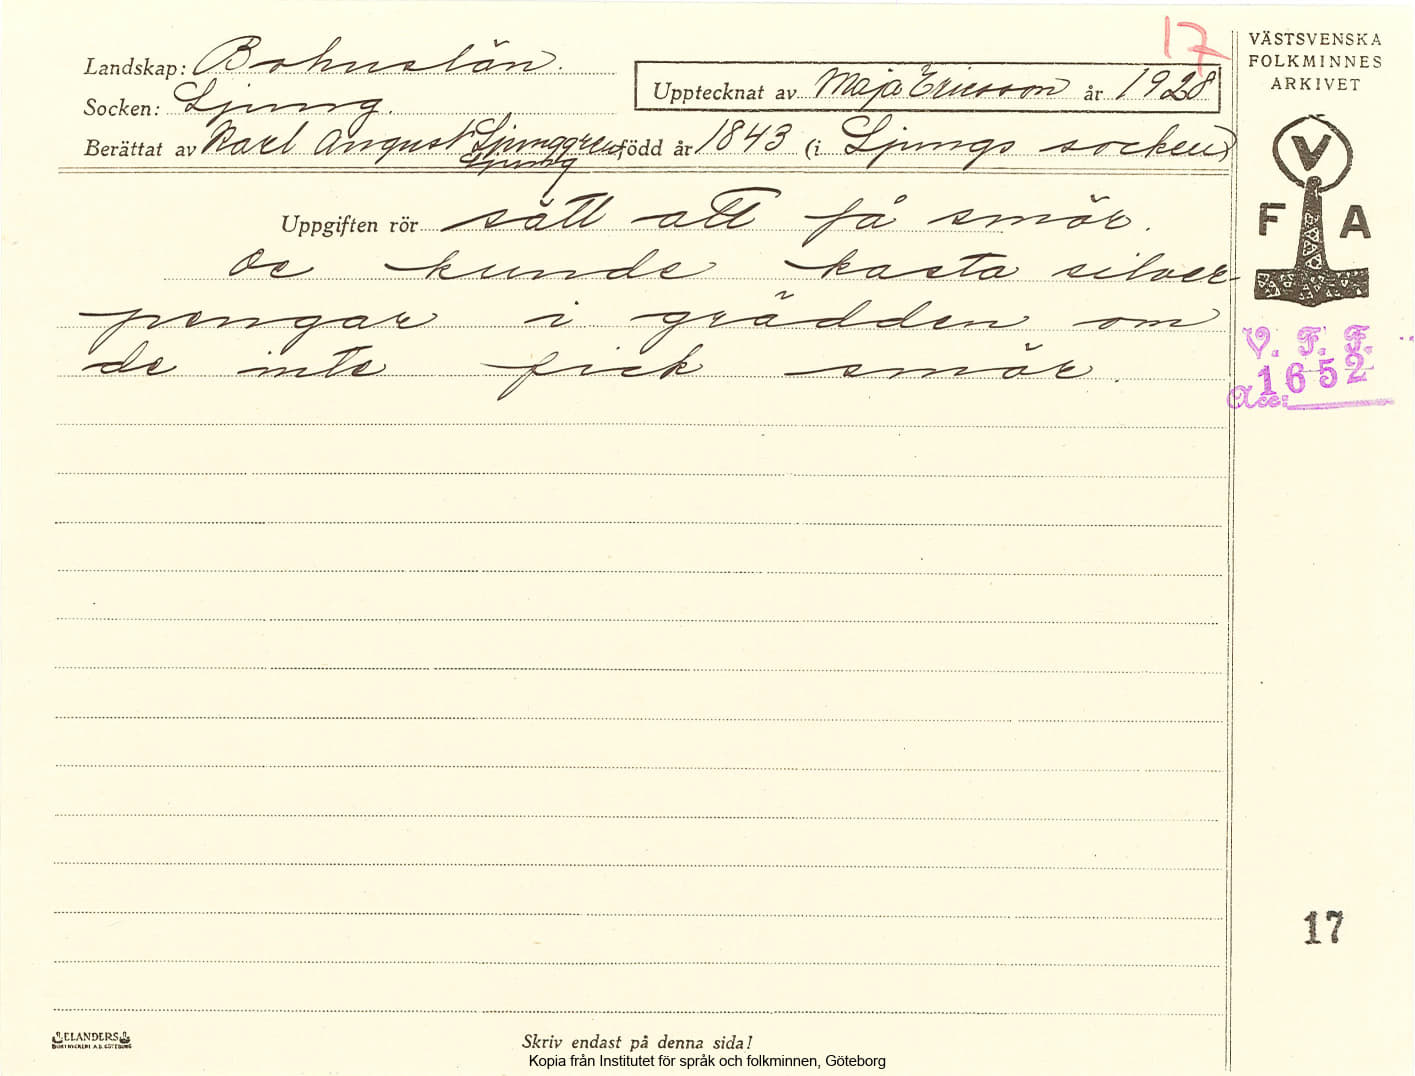 17
VÄSTSVENSKA
FOLKMINNES
ARKIVET
Landskap: Bohuslän.
Upptecknat av Maja Ericsson år 1928
Socken: Ljung.
Berättat av Karl August Ljunggren född år 1843 (i Ljungs socken)
Ljung
V
F A
Uppgiften rör sätt att få smör.
De kunde kasta silver-
pengar i grädden om
de inte fick smör.
V. F. F.
Acc: 1652
17
ELANDERS
BOKTRYCKERI A.B. GÖTEBORG
Skriv endast på denna sida!
Kopia från Institutet för språk och folkminnen, Göteborg